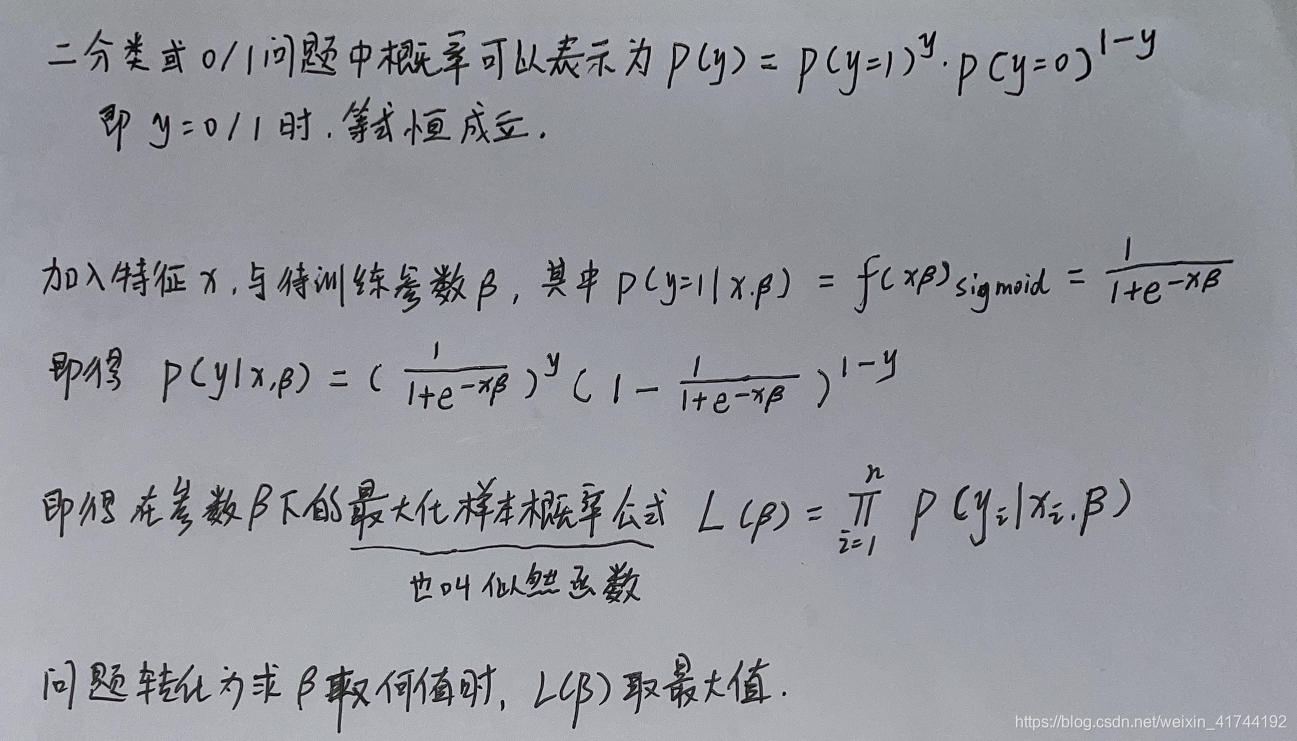 二分类或0/1问题中概率可以表示为 P(y) = P(y=1)^y · P(y=0)^{1-y}
即 y=0/1时.等式恒成立.
加入特征x.与待训练参数β, 其中 P(y=1|x.β) = f(xβ)_{sigmoid} = \frac{1}{1+e^{-xβ}}
即得 P(y|x,β) = (\frac{1}{1+e^{-xβ}})^y (1 - \frac{1}{1+e^{-xβ}})^{1-y}
即得在参数β下的最大化样本概率公式 L(β) = \prod_{i=1}^{n} P(y_i|x_i.β)
也叫似然函数
问题转化为求β取何值时, L(β)取最大值.
https://blog.csdn.net/weixin_41744192